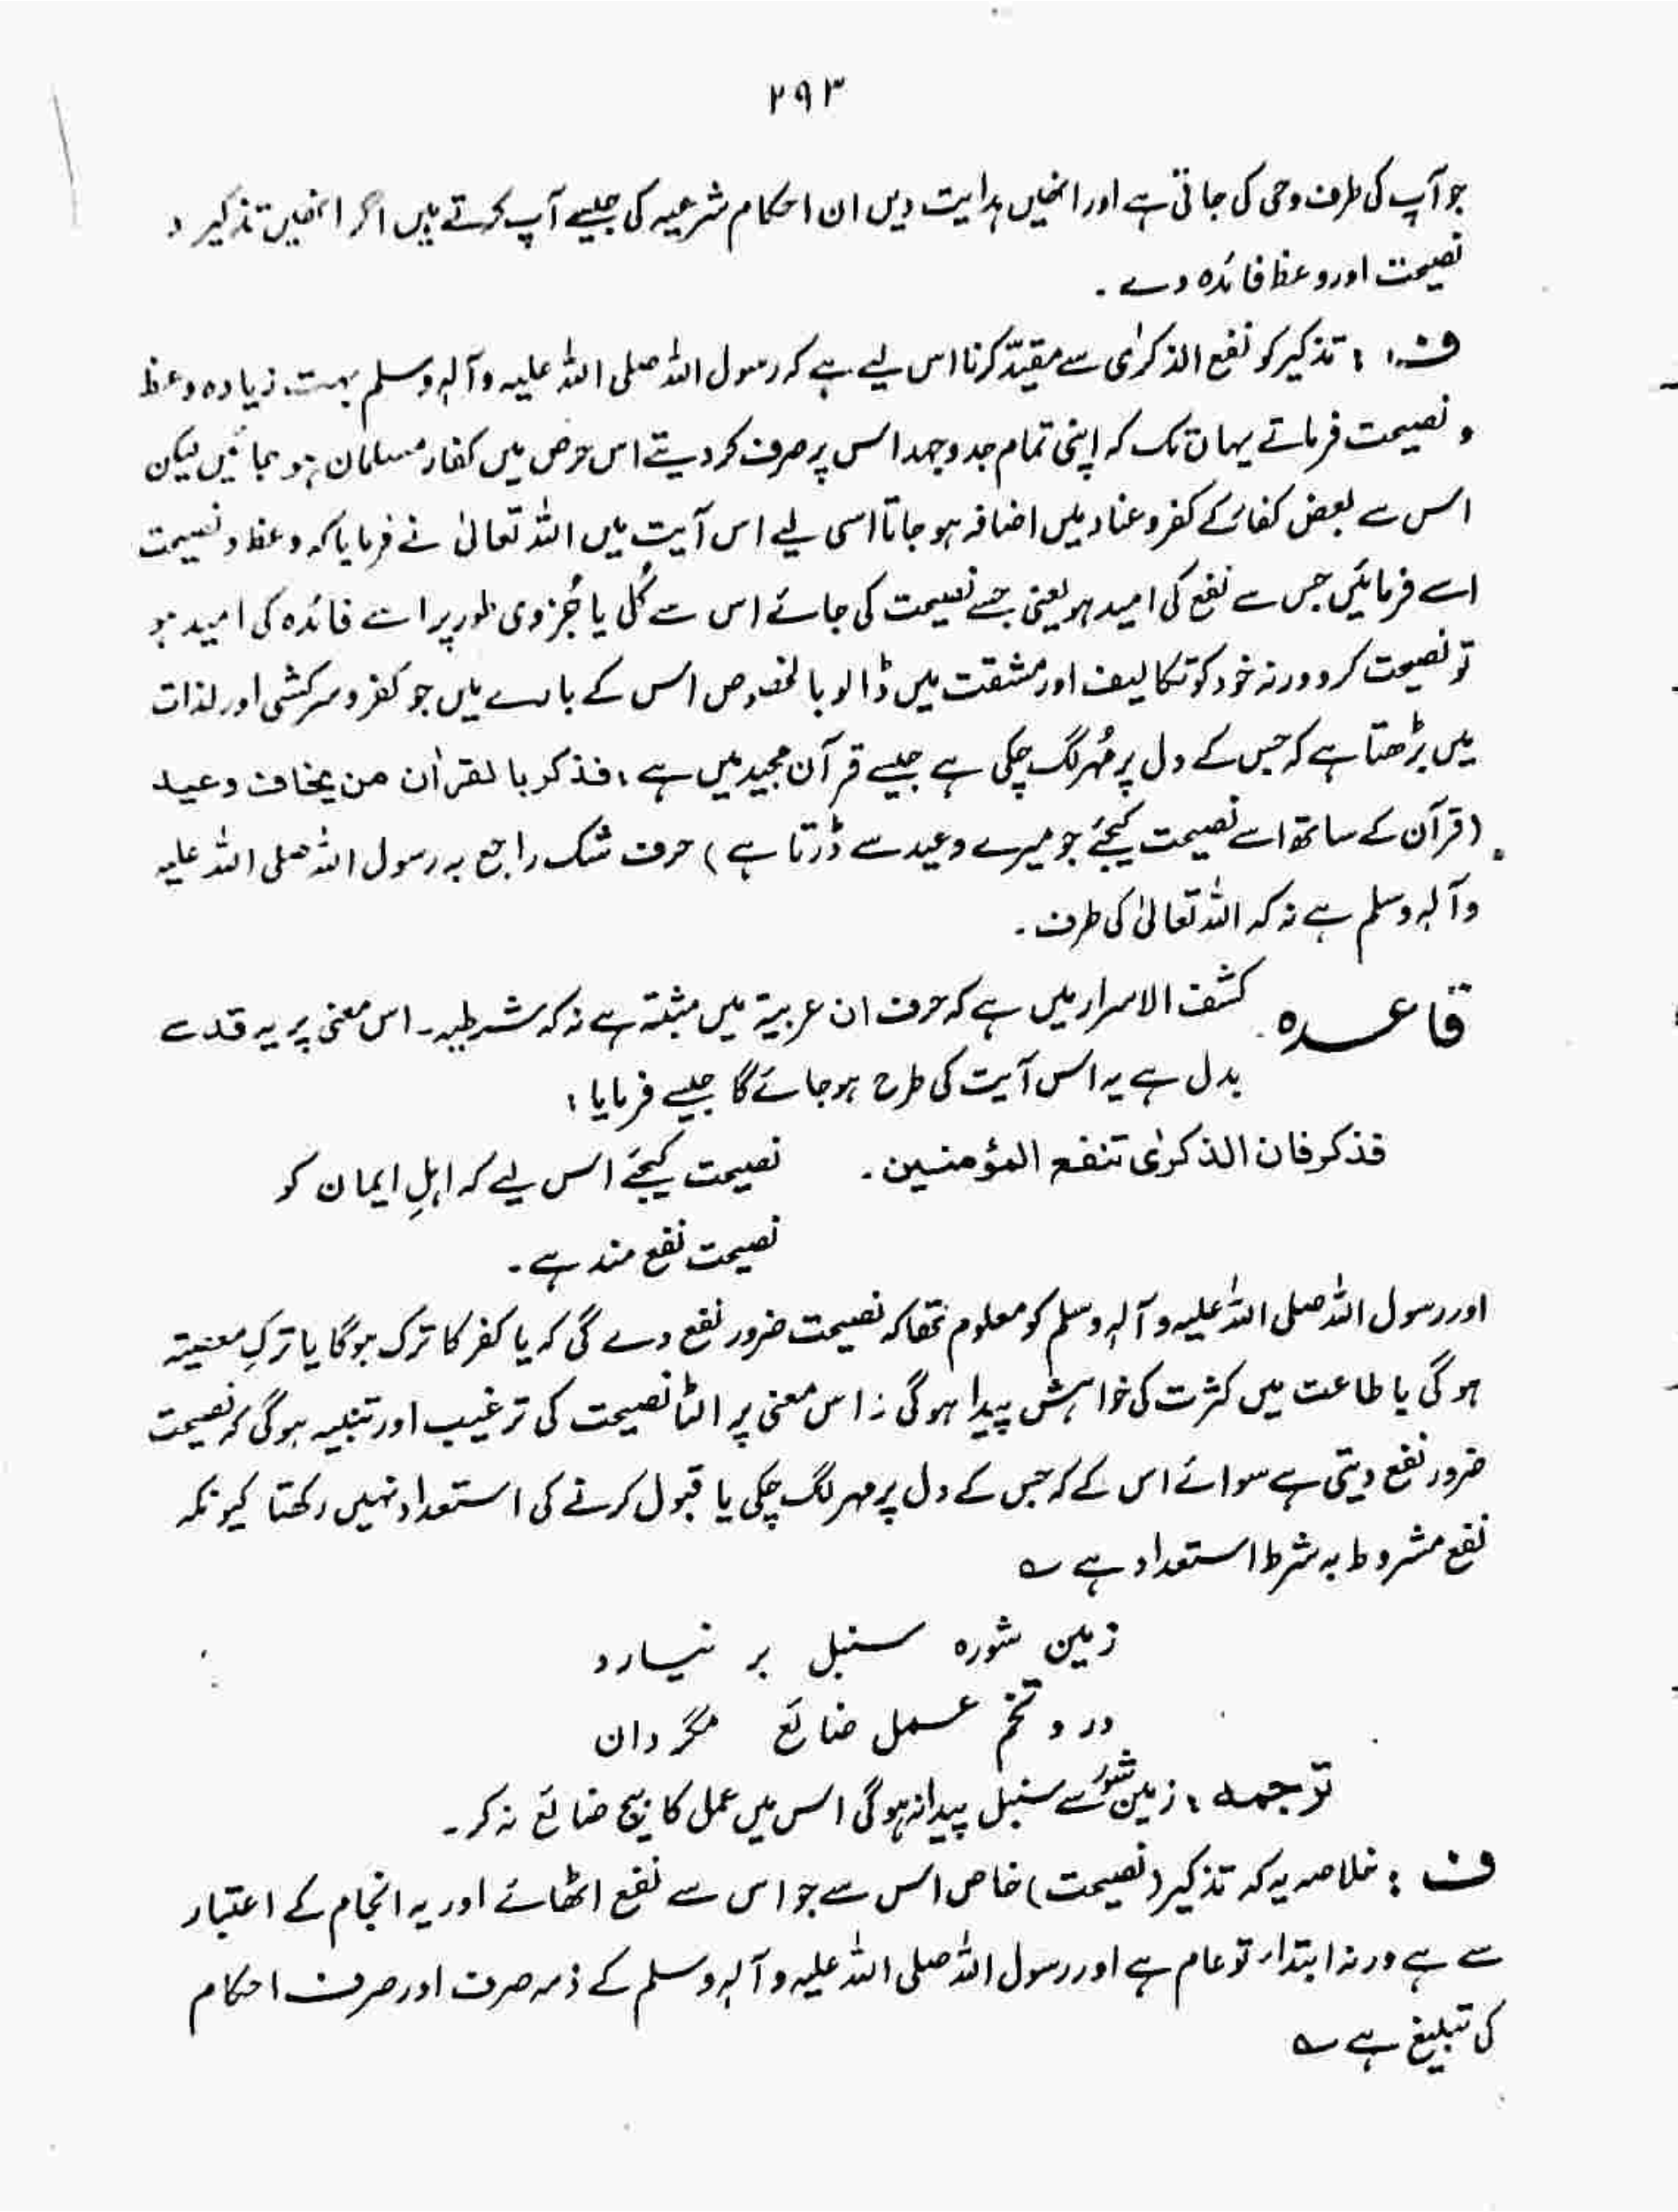 ۲۹۳
جو آپ کی طرف وحی کی جاتی ہے اور انھیں ہدایت دیں ان احکام شرعیہ کی جیسے آپ کرتے ہیں اگر انھیں تذکیر و
نصیحت اور وعظ فائدہ دے ۔
ف : تذکیر کو نفع الذکرٰی سے مقیّد کرنا اس لیے ہے کہ رسول اللہ صلی اللہ علیہ وآلہ وسلم بہت زیادہ وعظ
و نصیحت فرماتے یہاں تک کہ اپنی تمام جدوجہد اس پر صرف کر دیتے اس حرص میں کفار مسلمان ہو جائیں لیکن
اس سے بعض کفار کے کفر و عناد میں اضافہ ہو جاتا اسی لیے اس آیت میں اللہ تعالیٰ نے فرمایا کہ وعظ و نصیحت
اسے فرمائیں جس سے نفع کی امید ہو یعنی جسے نصیحت کی جائے اس سے کُل یا جُزوی طور پر اسے فائدہ کی امید ہو
تو نصیحت کرو ورنہ خود کو تکالیف اور مشقت میں ڈالو بالخصوص اس کے بارے میں جو کفر و سرکشی اور لذات
میں بڑھتا ہے کہ جس کے دل پر مُہر لگ چکی ہے جیسے قرآن مجید میں ہے : فذکر بالقراٰن من یخاف وعید
(قرآن کے ساتھ اسے نصیحت کیجئے جو میرے وعید سے ڈرتا ہے) حرف شک راجع بہ رسول اللہ صلی اللہ علیہ
وآلہ وسلم ہے نہ کہ اللہ تعالیٰ کی طرف ۔
قاعدہ کشف الاسرار میں ہے کہ حرف ان عربیۃ میں مثبتہ ہے نہ کہ شرطیہ ۔ اس معنی پر یہ قد سے
بدل ہے یہ اس آیت کی طرح ہو جائے گا جیسے فرمایا :
فذکر فان الذکرٰی تنفع المؤمنین ۔ نصیحت کیجئے اس لیے کہ اہلِ ایمان کو
نصیحت نفع مند ہے ۔
اور رسول اللہ صلی اللہ علیہ وآلہ وسلم کو معلوم تھا کہ نصیحت ضرور نفع دے گی کہ یا کفر کا ترک ہوگا یا ترکِ معصیۃ
ہوگی یا طاعت میں کثرت کی خواہش پیدا ہوگی ۔ اس معنی پر الٹا نصیحت کی ترغیب اور تنبیہ ہوگی کہ نصیحت
ضرور نفع دیتی ہے سوائے اس کے کہ جس کے دل پر مہر لگ چکی یا قبول کرنے کی استعداد نہیں رکھتا کیونکہ
نفع مشروط بہ شرط استعداد ہے ؎
زمین شورہ سنبل بر نیارد
درو تخم عمل ضائع مگرداں
ترجمہ : زمین شور سے سنبل پیدا نہ ہوگی اس میں عمل کا بیج ضائع نہ کر ۔
ف : خلاصہ یہ کہ تذکیر (نصیحت) خاص اس سے جو اس سے نفع اٹھائے اور یہ انجام کے اعتبار
سے ہے ورنہ ابتداءً تو عام ہے اور رسول اللہ صلی اللہ علیہ وآلہ وسلم کے ذمہ صرف اور صرف احکام
کی تبلیغ ہے ؎